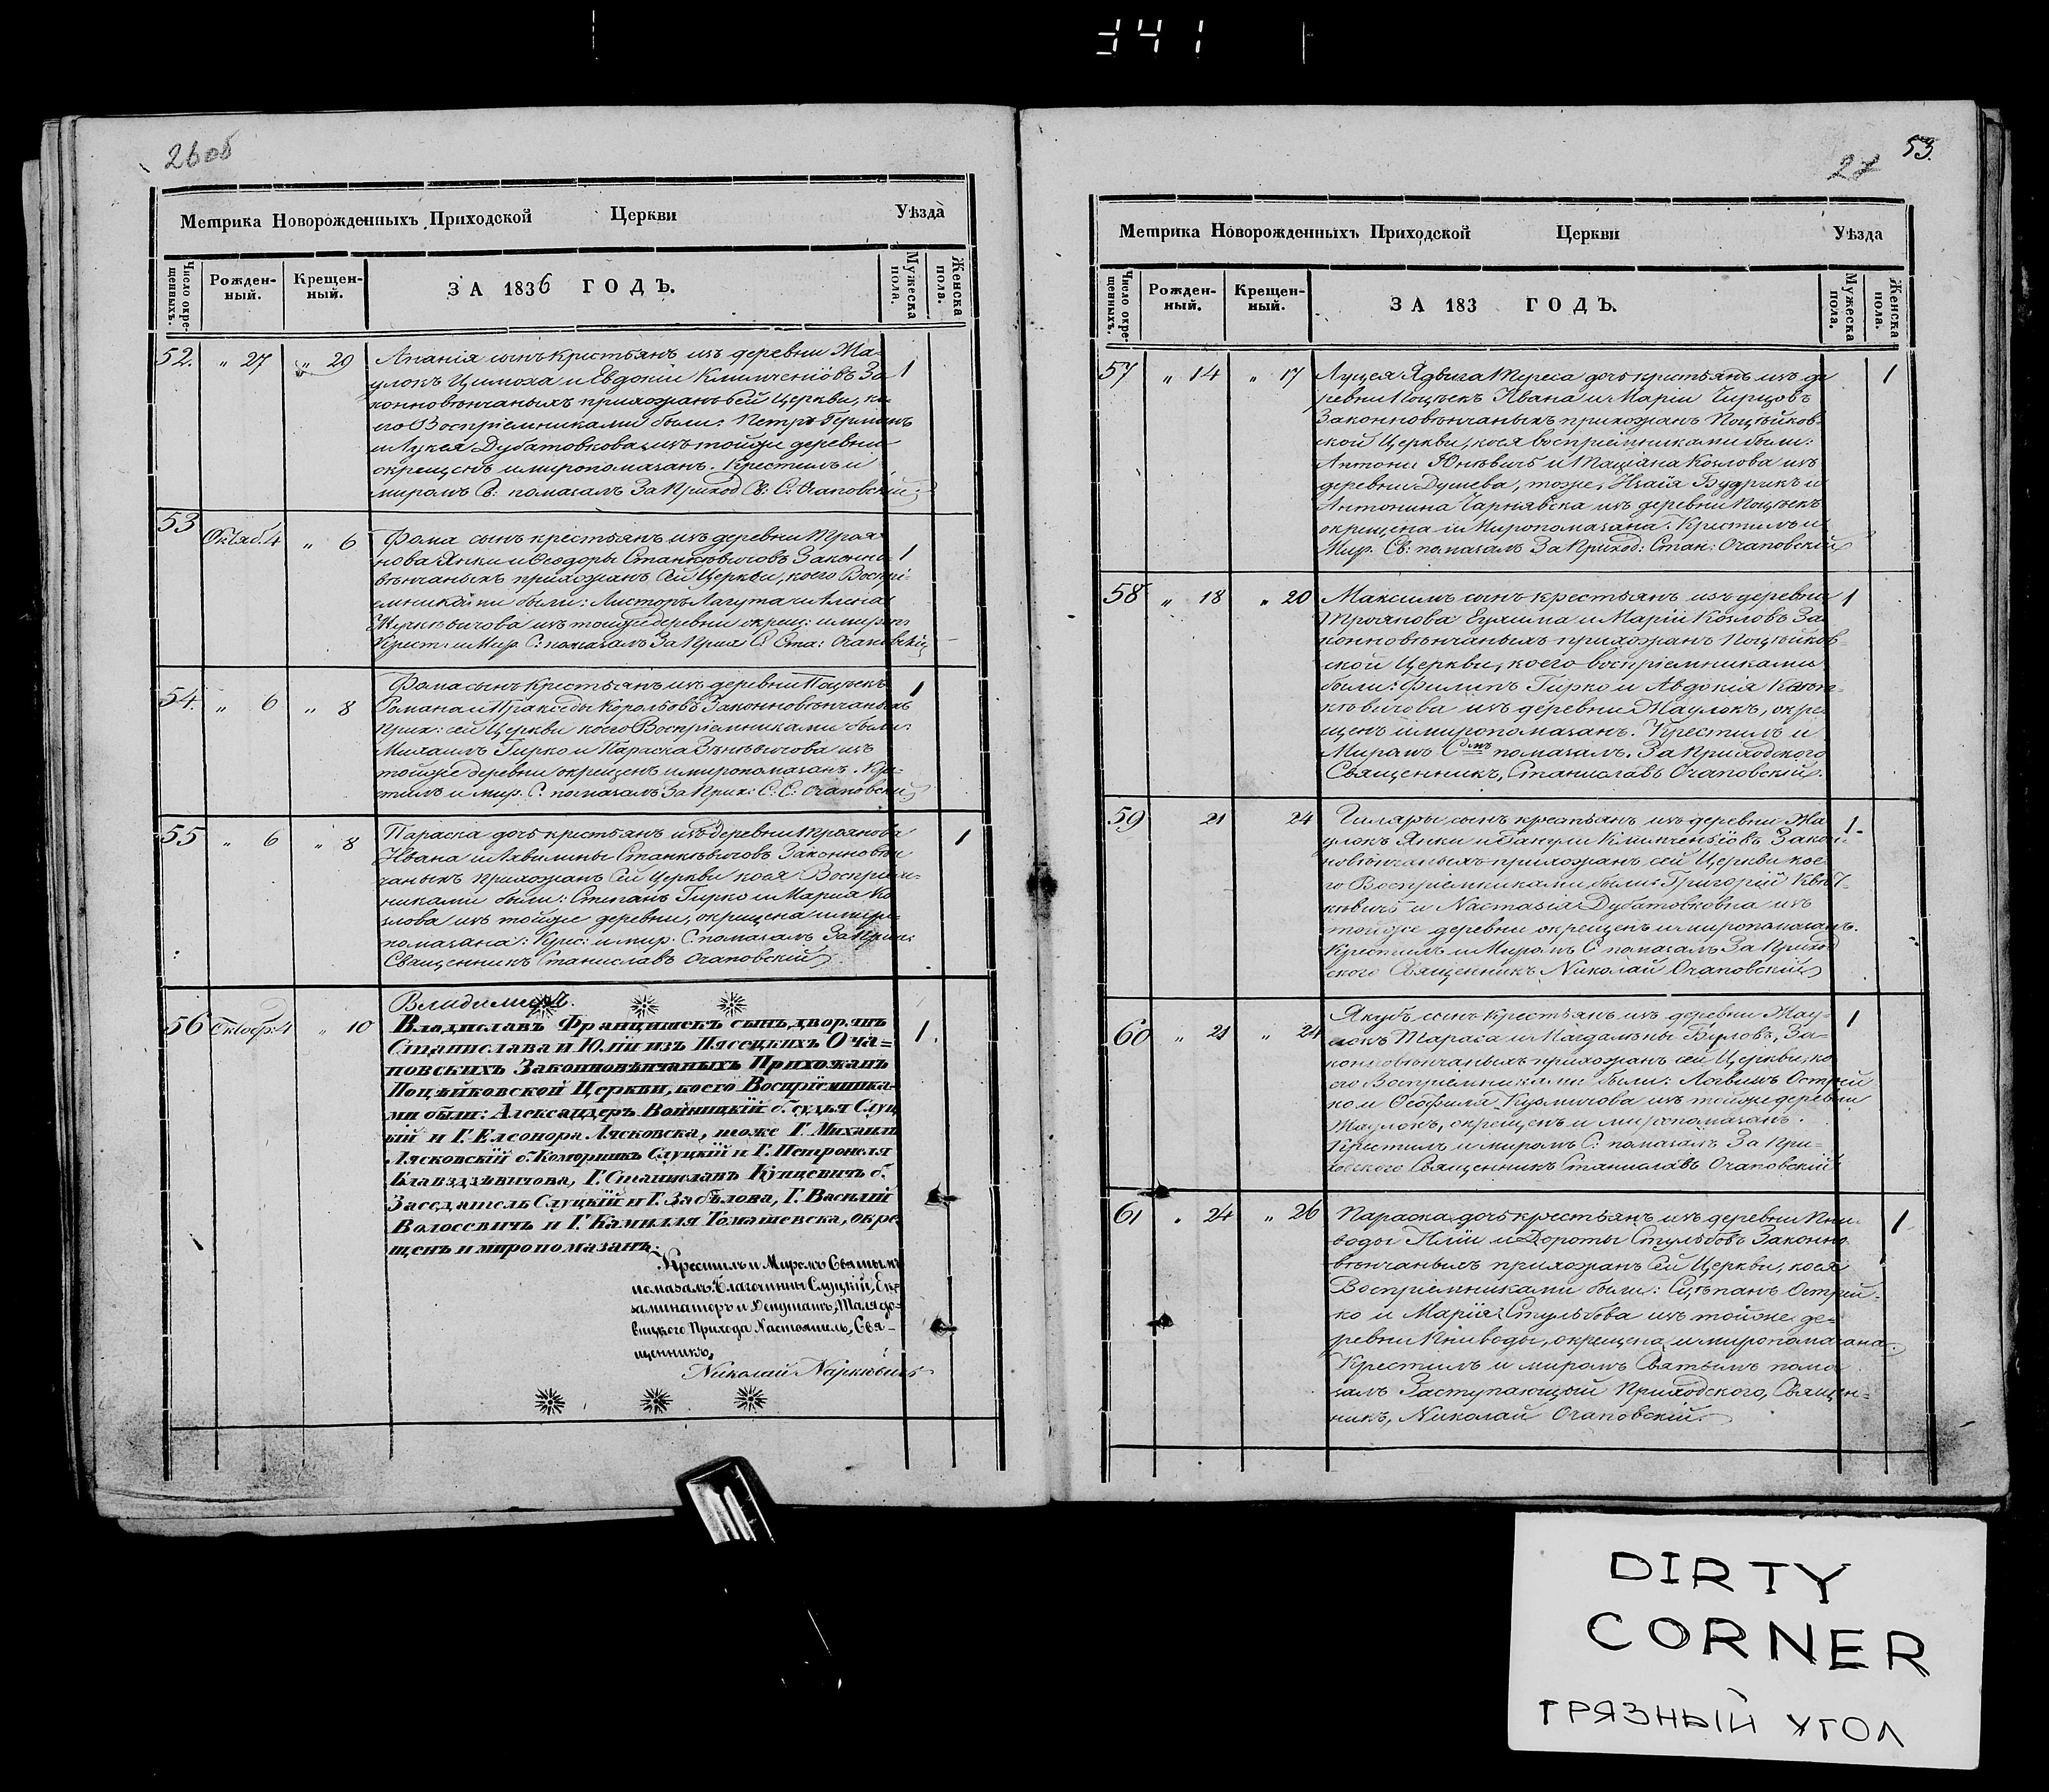 341
26об
Метрика Новорожденныхъ Приходской Церкви Уѣзда
Число окрещенныхъ.
Рожденный.
Крещенный.
ЗА 1836 ГОДЪ.
Мужеска пола.
Женска пола.
52. " 27 " 29
Апанія сынъ крестьянъ изъ деревни Жа-
улокъ Цимоха и Евдокіи Климченіовъ За
конновѣнчаныхъ прихожанъ сей Церкви, ко
его Воспріемниками были: Петръ Германъ
и Лукея Дубатовкова изъ тойже деревни
окрещенъ и миропомазанъ. Крестилъ и
миромъ С: помазалъ За Приход Св: С: Очаповскій.
1
53 Октяб. 4 " 6
Фома сынъ крестьянъ изъ деревни Троя
нова Янки и Ѳеодоры Станкевичовъ Законно-
вѣнчаныхъ прихожанъ Сей Церкви, коего Воспрі-
емниками были: Листоръ Лагута и Алена
изъ тойже деревни окрещ: и миропо
Крест: и Мир. С: помазалъ За Прих С. Ста: Очаповскій
1
54. " 6 " 8
Фома сынъ Крестьянъ изъ деревни Поцѣекъ
Романа и Праксѣды Корольовъ Законновѣнчаныхъ
Прих: сей Церкви коего Воспріемниками были:
Михаилъ Гирко и Параска Зѣнкевичова изъ
тойже деревни окрещенъ и миропомазанъ. Кре-
стилъ и мир. С. помазалъ За Прих: С: С: Очаповскій
1
55 " 6 " 8
Параска дочь крестьянъ изъ деревни Троянова
Ивана и Аквилины Станкѣвичовъ Законновѣн
чаныхъ прихожанъ Сей Церкви коея Воспріем-
никами были: Степанъ Гирко и Марія Ко
злова изъ тойже деревни, окрещена и миро-
помазана: Крес: и мир. С. помазалъ За Прих:
Священникъ Станиславъ Очаповскій
1
56 Октобр: 4 " 10
Владимиръ.
Владиславъ Францишекъ сынъ дворянъ
Станислава и Юліи изъ Пясецкихъ Оча=
повскихъ Законновѣнчаныхъ Прихожанъ
Поцѣйковской Церкви, коего Воспріемника-
ми были: Александеръ Войницкій б. судья Слуц
кій и Г. Елеонора Лясковска, тоже Г. Михаилъ
Лясковскій б. Коморникъ Слуцкій и Г. Петронеля
Г. Станиславъ Кунцевичъ б.
Засѣдатель Слуцкій и Г. Забѣлова, Г. Василій
Волосевичъ и Г. Камилля Томашевска, окре
щенъ и миропомазанъ.
1.
Крестилъ и Миромъ Святымъ
помазалъ Благочинны Слуцкій, Ек-
заминаторъ и Депутатъ, Талядо-
вицкого Прихода Настоятель, Свя-
щенникъ,
Николай
53.
27
Метрика Новорожденныхъ Приходской Церкви Уѣзда
Число окрещенныхъ.
Рожденный.
Крещенный.
ЗА 183 ГОДЪ.
Мужеска пола.
Женска пола.
57 " 14 " 17
Луцея Ядвига Тереса дочь крестьянъ изъ де
ревни Поцѣекъ Ивана и Маріи Чирцовъ
Законновѣнчаныхъ прихожанъ Поцѣйков-
ской Церкви, коея воспріемниками были:
Антони Юнкѣвичъ и Таціана Козлова изъ
деревни Душева, тоже, Исаія Будрикъ и
Антонина Чарнявска изъ деревни Поцѣекъ
окрещена и Миропомазана: Крестилъ и
Мир. Св: помазалъ За Приход: Стан: Очаповскій
1
58 " 18 " 20
Максимъ сынъ крестьянъ изъ деревни
Троянова Ехима и Маріи Козловъ За
конновѣнчаныхъ прихожанъ Поцѣйков-
ской Церкви, коего воспріемниками
были: Филипъ Гирко и Авдокія
кѣвичова изъ деревни Жаулокъ, окре
щенъ и миропомазанъ. Крестилъ и
Миромъ С помазалъ. За Приходского
Священникъ, Станиславъ Очаповскій.
1
59 21 24
Гиляры, сынъ крестьянъ изъ деревни Жа
улокъ Янки и Гапули Климченіовъ Закон-
новѣнчаныхъ прихожанъ сей Церкви кое
го Воспріемниками были: Григорій
кѣвичъ и Настазія Дубатовковна изъ
тойже деревни окрещенъ и миропомазанъ.
Крестилъ и Миромъ С помазалъ За Приход
ского Священникъ Николай Очаповскій
1.
60 " 21 " 24
Якубъ сынъ крестьянъ изъ деревни Жау-
локъ Тараса и Магдалены Буловъ, За-
конновѣнчаныхъ прихожанъ сей Церкви, ко
его Воспріемниками были: Логвинъ Острей
ко и Ѳеофиля Кузмичова изъ тойже деревни
Жаулокъ, окрещенъ и миропомазанъ.
Крестилъ и миромъ С: помазалъ За При-
ходского Священникъ Станиславъ Очаповскій
1
61 " 24 " 26
Параска дочь крестьянъ изъ деревни Пни-
воды Иліи и Дороты Стульбовъ Законно-
вѣнчаныхъ прихожанъ Сей Церкви, коея
Воспріемниками были: Сцѣпанъ Острей-
ко и Марія Стульбова изъ тойже де-
ревни Пниводы, окрещена и миропомазана.
Крестилъ и миромъ Святымъ пома
залъ Заступающый Приходского, Священ-
никъ, Николай Очаповскій.
1
DIRTY
CORNER
ГРЯЗНЫЙ УГОЛ